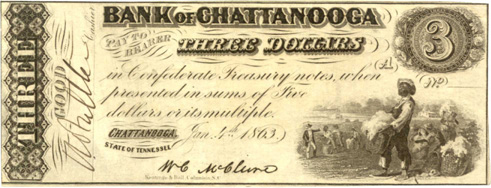 BANK OF CHATTANOOGA
PAY TO BEARER THREE DOLLARS
3
(A)
in Confederate Treasury notes, when
presented in sums of Five
dollars or its multiple.
CHATTANOOGA, Jan. 4th 1863.
STATE OF TENNESSEE
W C McClure
THREE
GOOD
Cashier